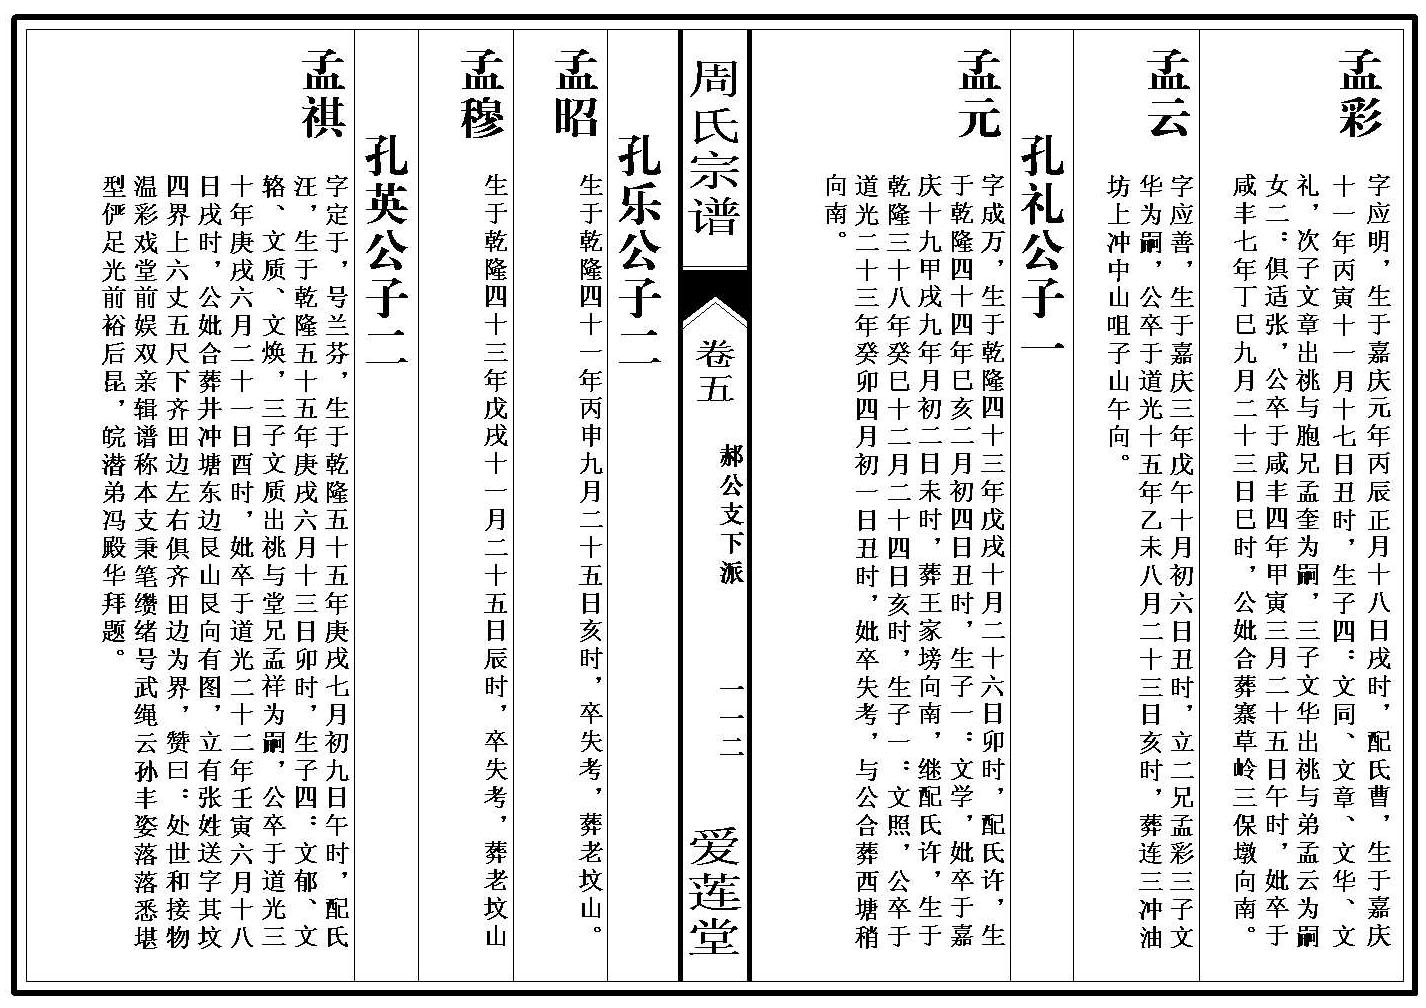 孟彩
字应明，生于嘉庆元年丙辰正月十八日戌时，配氏曹，生于嘉庆
十一年丙寅十一月十七日丑时，生子四：文同、文章、文华、文
礼，次子文章出祧与胞兄孟奎为嗣，三子文华出祧与弟孟云为嗣
女二：俱适张，公卒于咸丰四年甲寅三月二十五日午时，妣卒于
咸丰七年丁巳九月二十三日巳时，公妣合葬寨草岭三保墩向南。
孟云
字应善，生于嘉庆三年戊午十月初六日丑时，立二兄孟彩三子文
华为嗣，公卒于道光十五年乙未八月二十三日亥时，葬连三冲油
坊上冲中山咀子山午向。
孔礼公子一
孟元
字成万，生于乾隆四十三年戊戌十月二十六日卯时，配氏许，生
于乾隆四十四年巳亥二月初四日丑时，生子一：文学，妣卒于嘉
庆十九甲戌九年月初二日未时，葬王家塝向南，继配氏许，生于
乾隆三十八年癸巳十二月二十四日亥时，生子一：文照，公卒于
道光二十三年癸卯四月初一日丑时，妣卒失考，与公合葬西塘稍
向南。
周氏宗谱
卷五
郝公支下派
一一二
爱莲堂
孔乐公子二
孟昭
生于乾隆四十一年丙申九月二十五日亥时，卒失考，葬老坟山。
孟穆
生于乾隆四十三年戊戌十一月二十五日辰时，卒失考，葬老坟山
孔英公子二
孟祺
字定于，号兰芬，生于乾隆五十五年庚戌七月初九日午时，配氏
汪，生于乾隆五十五年庚戌六月十三日卯时，生子四：文郁、文
辂、文质、文焕，三子文质出祧与堂兄孟祥为嗣，公卒于道光三
十年庚戌六月二十一日酉时，妣卒于道光二十二年壬寅六月十八
日戌时，公妣合葬井冲塘东边艮山艮向有图，立有张姓送字其坟
四界上六丈五尺下齐田边左右俱齐田边为界，赞曰：处世和接物
温彩戏堂前娱双亲辑谱称本支秉笔缵绪号武绳云孙丰姿落落悉堪
型俨足光前裕后昆，皖潜弟冯殿华拜题。